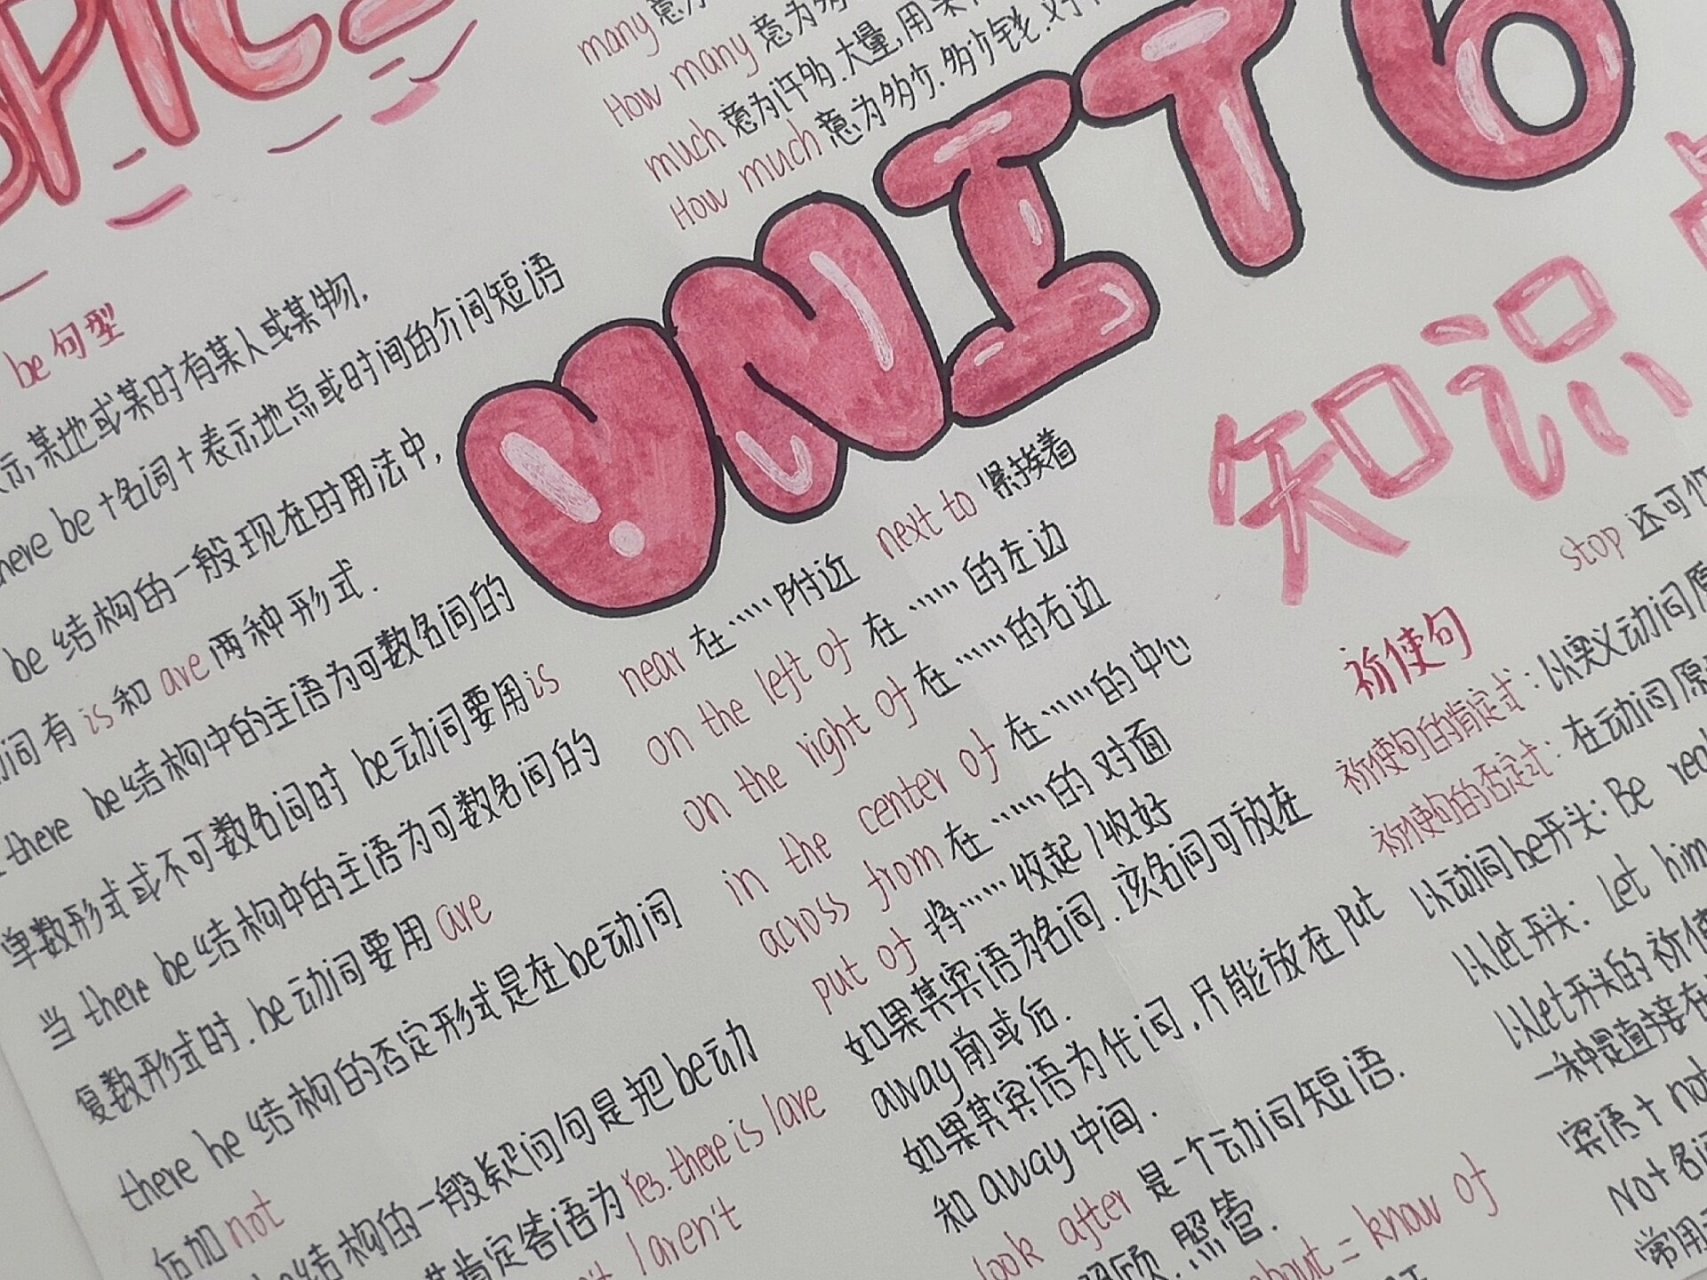 PIC
many 意为
How many 意为多
much 意为许多.大量,用来
How much 意为多少.多少钱.对
UNIT 6
知识
be句型
示,某地或某时有某人或某物.
here be +名词+表示地点或时间的介词短语
be 结构的一般现在时用法中,
词有 is 和 are 两种形式.
there be结构中的主语为可数名词的
单数形式或不可数名词时 be动词要用 is
当 there be结构中的主语为可数名词的
复数形式时.be动词要用 are
there be 结构的否定形式是在be动词
后加 not
结构的一般疑问句是把be动
肯定答语为 Yes. there is / are
/ aren't
near 在……附近 next to 紧挨着
on the left of 在……的左边
on the right of 在……的右边
in the center of 在……的中心
across from 在……的对面
put of 将……收起/收好
如果其宾语为名词.该名词可放在
away前或后.
如果其宾语为代词,只能放在 put
和 away 中间.
look after 是一个动词短语.
照顾.照管.
about = know of
stop 还可
祈使句
祈使句的肯定式:以实义动词原
祈使句的否定式:在动词原
以动词be开头:Be
以let开头:Let him
以let开头的祈使
一种是直接在
宾语+ not
Not 名词
常用